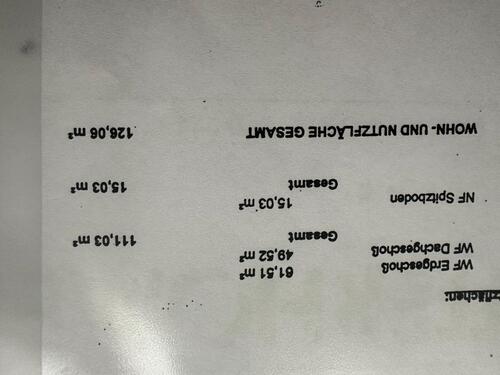 zflächen:
WF Erdgeschoß 61,51 m²
WF Dachgeschoß 49,52 m²
Gesamt 111,03 m²
NF Spitzboden 15,03 m²
Gesamt 15,03 m²
WOHN- UND NUTZFLÄCHE GESAMT 126,06 m²